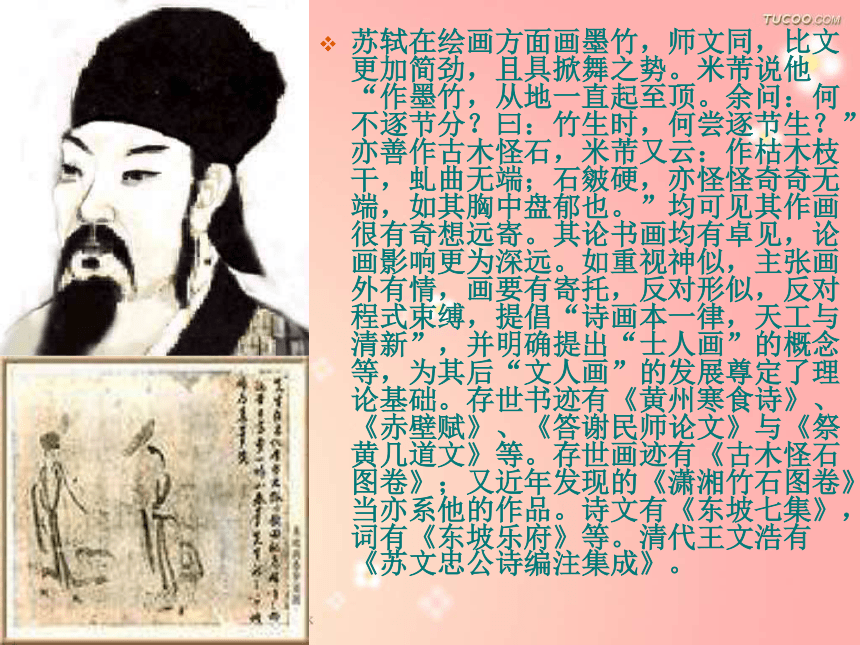 TUCOO.COM
苏轼在绘画方面画墨竹，师文同，比文
更加简劲，且具掀舞之势。米芾说他
“作墨竹，从地一直起至顶。余问：何
不逐节分？曰：竹生时，何尝逐节生？”
亦善作古木怪石，米芾又云：作枯木枝
干，虬曲无端；石皴硬，亦怪怪奇奇无
端，如其胸中盘郁也。”均可见其作画
很有奇想远寄。其论书画均有卓见，论
画影响更为深远。如重视神似，主张画
外有情，画要有寄托，反对形似，反对
程式束缚，提倡“诗画本一律，天工与
清新”，并明确提出“士人画”的概念
等，为其后“文人画”的发展尊定了理
论基础。存世书迹有《黄州寒食诗》、
《赤壁赋》、《答谢民师论文》与《祭
黄几道文》等。存世画迹有《古木怪石
图卷》；又近年发现的《潇湘竹石图卷》
当亦系他的作品。诗文有《东坡七集》，
词有《东坡乐府》等。清代王文浩有
《苏文忠公诗编注集成》。